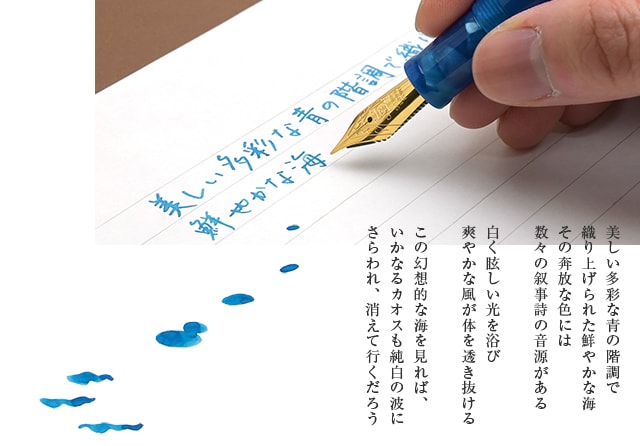 美しい多彩な青の階調で織
鮮やかな海
美しい多彩な青の階調で
織り上げられた鮮やかな海
その奔放な色には
数々の叙事詩の音源がある
白く眩しい光を浴び
爽やかな風が体を透き抜ける
この幻想的な海を見れば、
いかなるカオスも純白の波に
さらわれ、消えて行くだろう